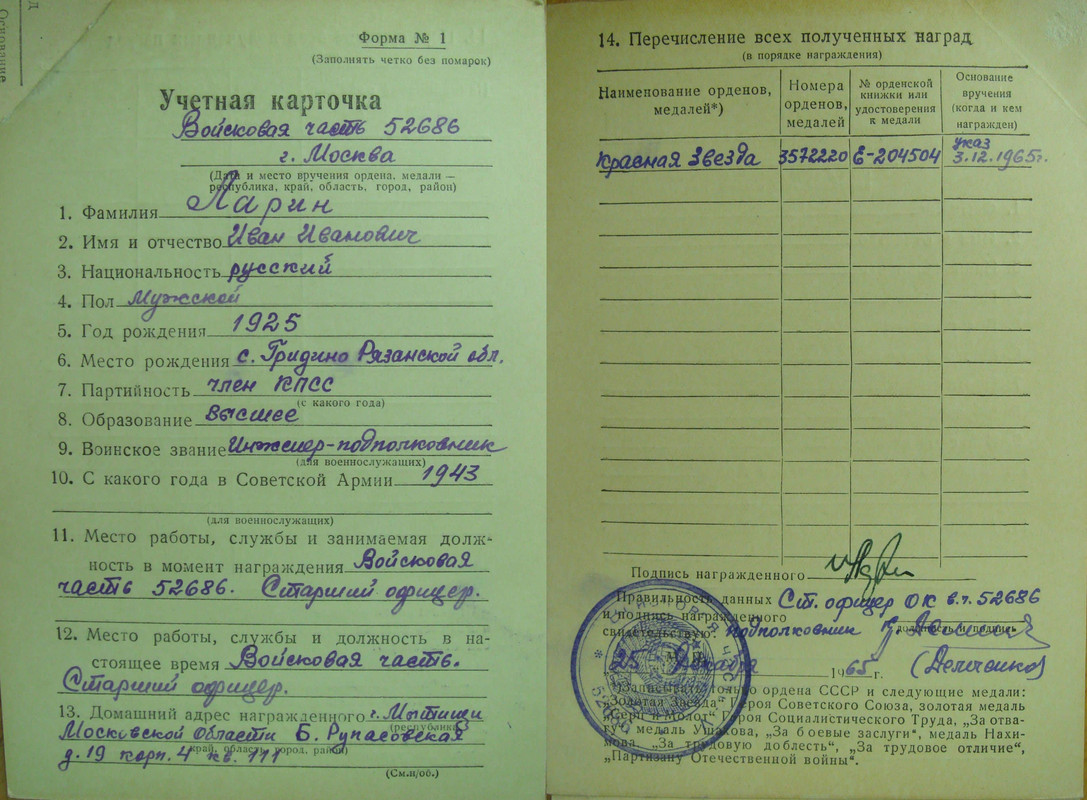 Основание
Форма № 1
(Заполнять четко без помарок)
Учетная карточка
Войсковая часть 52686
г. Москва
(Дата и место вручения ордена, медали —
республика, край, область, город, район)
1. Фамилия Ларин
2. Имя и отчество Иван Иванович
3. Национальность русский
4. Пол Мужской
5. Год рождения 1925
6. Место рождения с. Гридино Рязанской обл.
7. Партийность член КПСС
(с какого года)
8. Образование высшее
9. Воинское звание Инженер-подполковник
(для военнослужащих)
10. С какого года в Советской Армии 1943
(для военнослужащих)
11. Место работы, службы и занимаемая долж-
ность в момент награждения Войсковая
часть 52686. Старший офицер.
12. Место работы, службы и должность в на-
стоящее время Войсковая часть.
Старший офицер.
13. Домашний адрес награжденного г. Мытищи
(республика,
Московской области Б. Рупасовская
край, область, город, район)
д. 19 корп. 4 кв. 111
(См.н/об.)
14. Перечисление всех полученных наград
(в порядке награждения)
Наименование орденов, медалей*)
Номера орденов, медалей
№ орденской книжки или удостоверения к медали
Основание вручения (когда и кем награжден)
Красная Звезда 3572220 Е-204504 Указ 3.12.1965г.
Подпись награжденного
Правильность данных Ст. офицер ОК в.ч. 52686
и подпись награжденного
свидетельствую: подполковник
(должность и подпись)
25 Декабря 1965 г.
*) Записывать только ордена СССР и следующие медали:
„Золотая Звезда" Героя Советского Союза, золотая медаль
„Серп и Молот" Героя Социалистического Труда, „За отва-
гу", медаль Ушакова, „За боевые заслуги", медаль Нахи-
мова, „За трудовую доблесть", „За трудовое отличие",
„Партизану Отечественной войны".